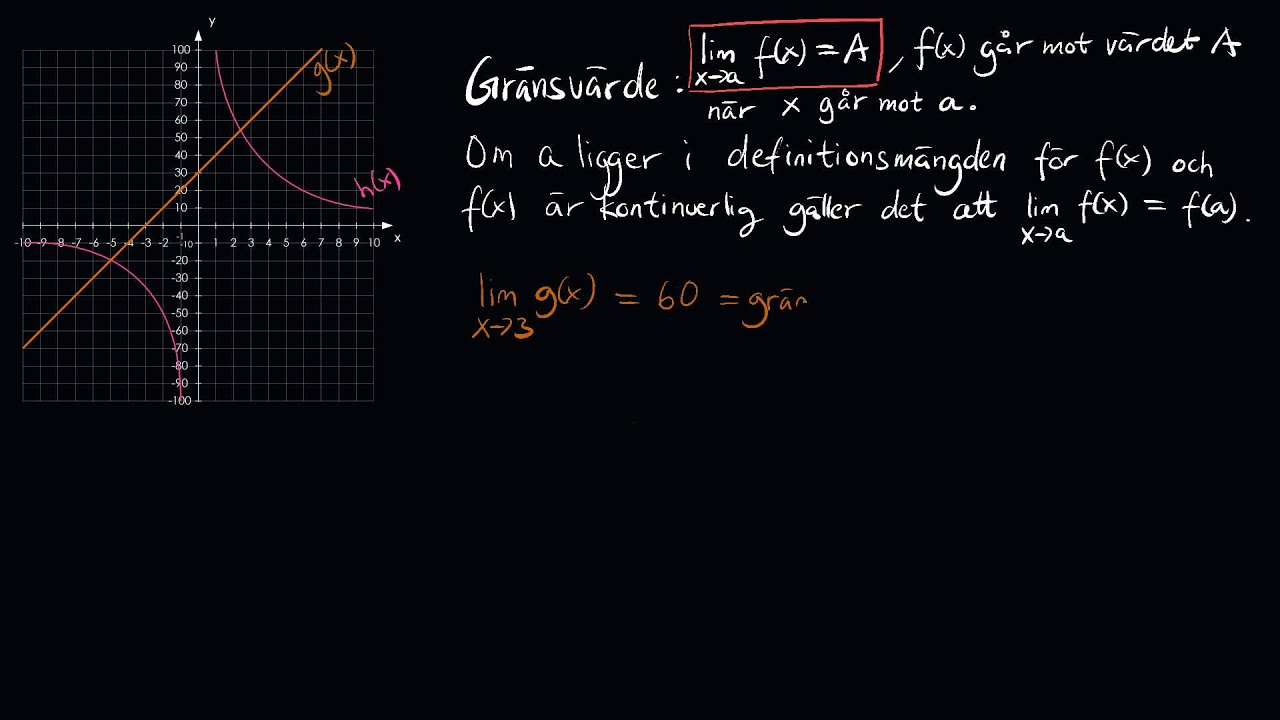 y
100
90
80
70
60
50
40
30
20
10
-10 -9 -8 -7 -6 -5 -4 -3 -2 -1 -10 1 2 3 4 5 6 7 8 9 10 x
-20
-30
-40
-50
-60
-70
-80
-90
-100
g(x)
h(x)
Gränsvärde: lim f(x) = A, f(x) går mot värdet A
x→a
när x går mot a.
Om a ligger i definitionsmängden för f(x) och
f(x) är kontinuerlig gäller det att lim f(x) = f(a).
x→a
lim g(x) = 60 = grän
x→3